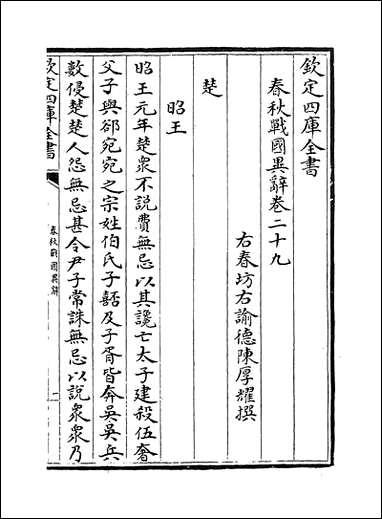 欽定四庫全書
春秋戰國異辭卷二十九
右春坊右諭德陳厚耀撰
楚
昭王
昭王元年楚衆不說費無忌以其讒亡太子建殺伍奢
父子與郤宛宛之宗姓伯氏子嚭及子胥皆奔吳吳兵
數侵楚楚人怨無忌甚令尹子常誅無忌以說衆衆乃
欽定四庫全書
春秋戰國異辭
一